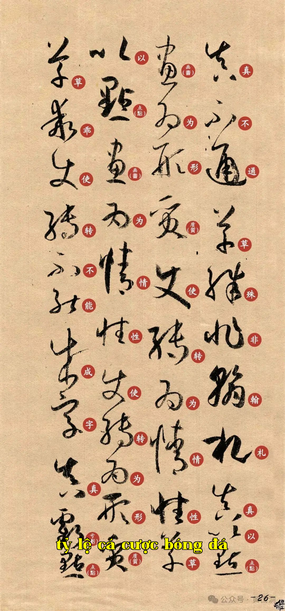 真不通草殊非翰札真以點
畫为形質使转为情性草
以點畫为情性使转为形質
草乖使转不能成字真虧點
tỷ lệ cá cược bóng đá
公众号
-26-